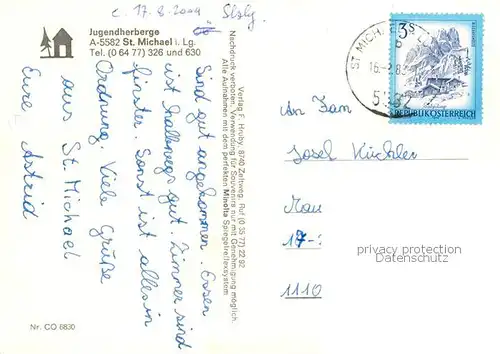 c. 17.8.2009
Jugendherberge
A-5582 St. Michael i. Lg.
Tel. (0 64 77) 326 und 630
Sind gut angekommen. Essen
ist halbwegs gut. Zimmer sind
finster. Sonst ist alles in
Ordnung. Viele Grüße
aus St. Michael
Eure Astrid
Verlag F. Houby, 8740 Zeltweg, Ruf (0 35 77) 22 92
Nachdruck verboten. Verwendung für Souvenirs nur mit Genehmigung möglich.
Alle Aufnahmen mit dem perfekten Minolta Spiegelreflexsystem
Nr. CO 6830
ST. MICH
5582
3S
REPUBLIK ÖSTERREICH
An Fam
Josef
1110
privacy protection
AKPOOL.DE